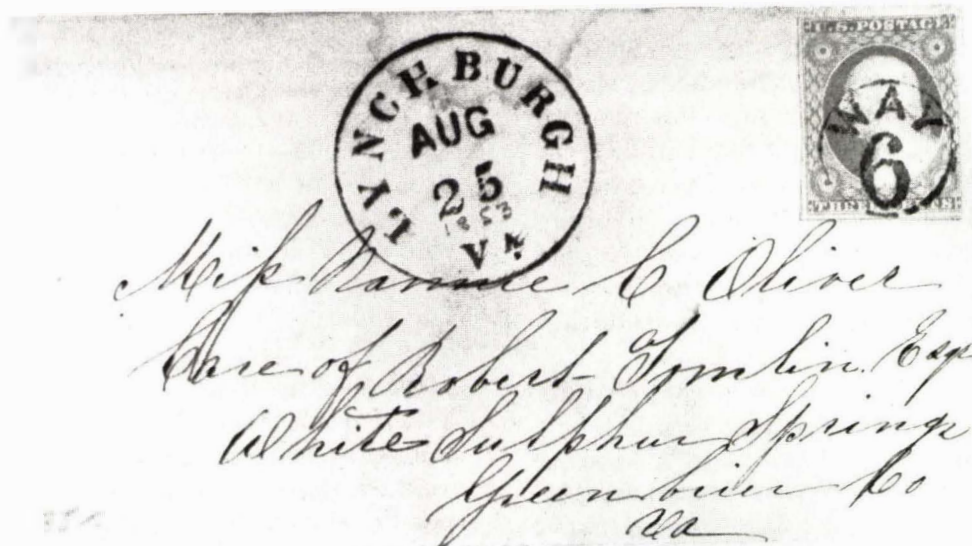 LYNCHBURGH
AUG
25
1853
VA.
U.S. POSTAGE
WAY
6
THREE CENTS
Miſs Nannie C Oliver
Care of Robert Tomlin. Esqr
White Sulphur Springs
Greenbrier Co
Va